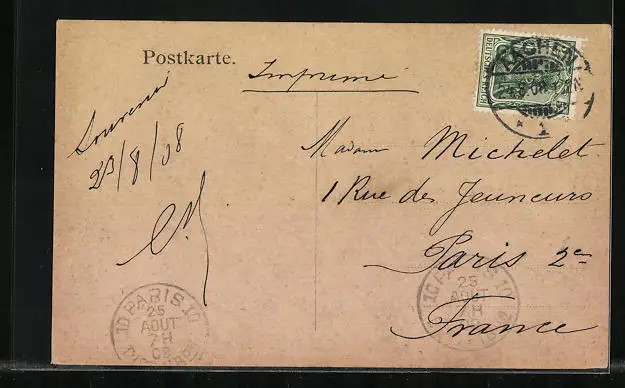 Postkarte.
Imprimé
Souvenir
23/8/08
CM
DEUTSCHES REICH
AACHEN
1
Madame Michelet
1 Rue des Jeuneurs
Paris 2e
France
10 PARIS 10
25
AOUT
7H
08
10 PARIS 10
25
AOUT
7H